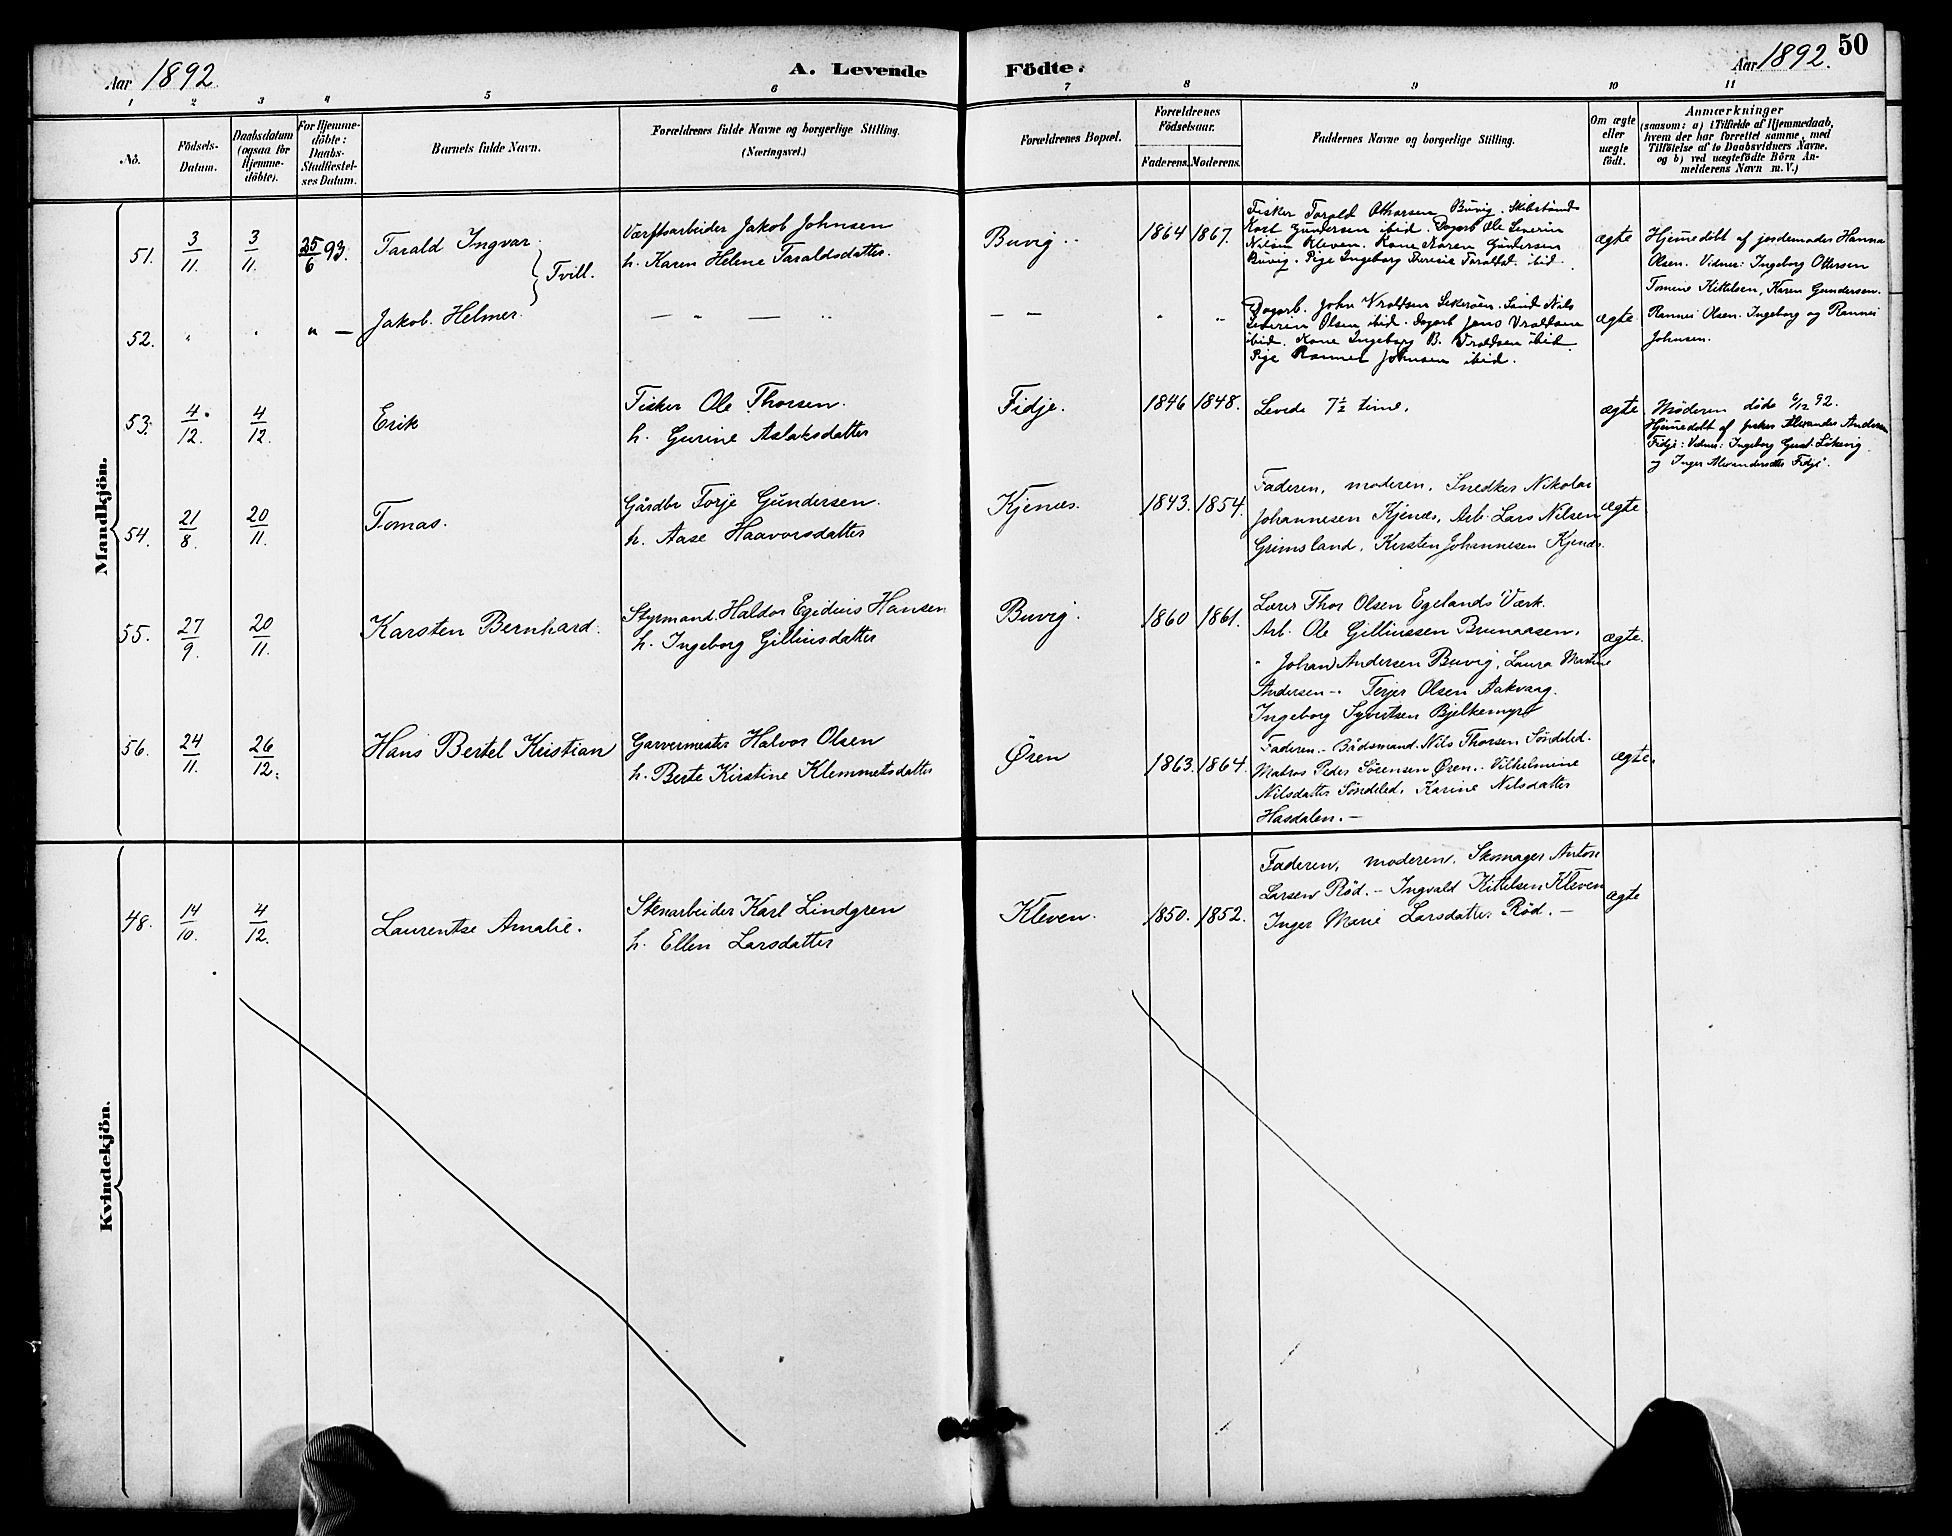 Aar 1892
A. Levende
Födte.
Aar 1892.
50
1 2 3 4 5 6 7 8 9 10 11
No.
Födsels-
Datum.
Daabsdatum
(ogsaa for
Hjemme-
döbte).
For Hjemme-
döbte:
Daabs-
Stadfæstel-
ses Datum.
Barnets fulde Navn.
Forældrenes fulde Navne og borgerlige Stilling.
(Næringsvei.)
Forældrenes Bopæl.
Forældrenes
Födselsaar.
Faderens. Moderens.
Faddernes Navne og borgerlige Stilling.
Om ægte
eller
uægte
födt.
Anmærkninger
(saasom: a) i Tilfælde af Hjemmedaab,
hvem der har forrettet samme, med
Tilföielse af to Daabsvidners Navne,
og b) ved uægtefödte Börn An-
melderens Navn m. V.)
Mandkjön.
51. 3/11. 3/11. 25/6 93. Tarald Ingvar } Tvill.
Værftsarbeider Jakob Johnsen
h. Karen Helene Taraldsdatter.
Buvig. 1864 1867.
Fisker Tarald Ottersen Buvig. Skibstømd
Gundersen ibid. Dagarb Ole Severin
Nilsen Kleven. Kone Karen Gundersen
Buvig. Pige Ingeborg Theresie Taraldsd. ibid.
ægte
Hjemmedøbt af jordemoder Hanna
Olsen. Vidner: Ingeborg Ottersen
Tomine Kittelsen, Karen Gundersen.
52. " " " — Jakob Helmer.
— " — "
— — " "
Dagarb. John Vroldsen
Severin Olsen ibid. Dagarb Jens Vroldsen
ibid. Kone Ingeborg B. Vroldsen ibid.
Pige Rannei Johnsen ibid.
ægte
Rannei Olsen. Ingeborg og Rannei
Johnsen.
53. 4/12. 4/12. Erik
Fisker Ole Thorsen.
h. Gurine Aslaksdatter
Fidje. 1846 1848. Levede 7½ time. ægte
Moderen døde 6/12 92.
Hjemmedøbt af fisker Alexander Andersen
Fidje: Vidner: Ingeborg
og Inger Alexandersdatter Fidje.
54. 21/8. 20/11. Tomas.
Gårdbr Torje Gundersen.
h. Aase Haavorsdatter
Kjenæs. 1843. 1854.
Faderen, moderen, Snedker Nikolai
Johannesen Kjenæs, Arb. Lars Nilsen
Grimsland, Kirsten Johannesen Kjenæs.
ægte
55. 27/9. 20/11. Karsten Bernhard.
Styrmand Haldor Egidius Hansen
h. Ingeborg Gilliusdatter
Buvig. 1860 1861.
Lærer Thor Olsen Egelands Værk.
Arb. Ole Gilliussen Brunaasen.
" Johan Andersen Buvig, Laura Martine
Andersen -. Terjer Olsen Aakvaag.
Ingeborg Syvertsen Bjelkemyr
ægte.
56. 24/11. 26/12. Hans Bertel Kristian
Garvermester Halvor Olsen
h. Berte Kirstine Klemmetsdatter
Øren 1863. 1864.
Faderen. - Bådsmand. Nils Thorsen Søndeled.
Matros Peder Sørensen Øren. - Vilhelmine
Nilsdatter Søndeled. Karine Nilsdatter
Hasdalen. -
ægte.
Kvindekjön.
48. 14/10. 4/12. Laurentse Amalie.
Stenarbeider Karl Lindgren
h. Ellen Larsdatter
Kleven. 1850. 1852.
Faderen, moderen, Skomager Anton
Larsen Rød. - Ingvald Kittelsen Kleven
Inger Marie Larsdatter Rød. -
ægte